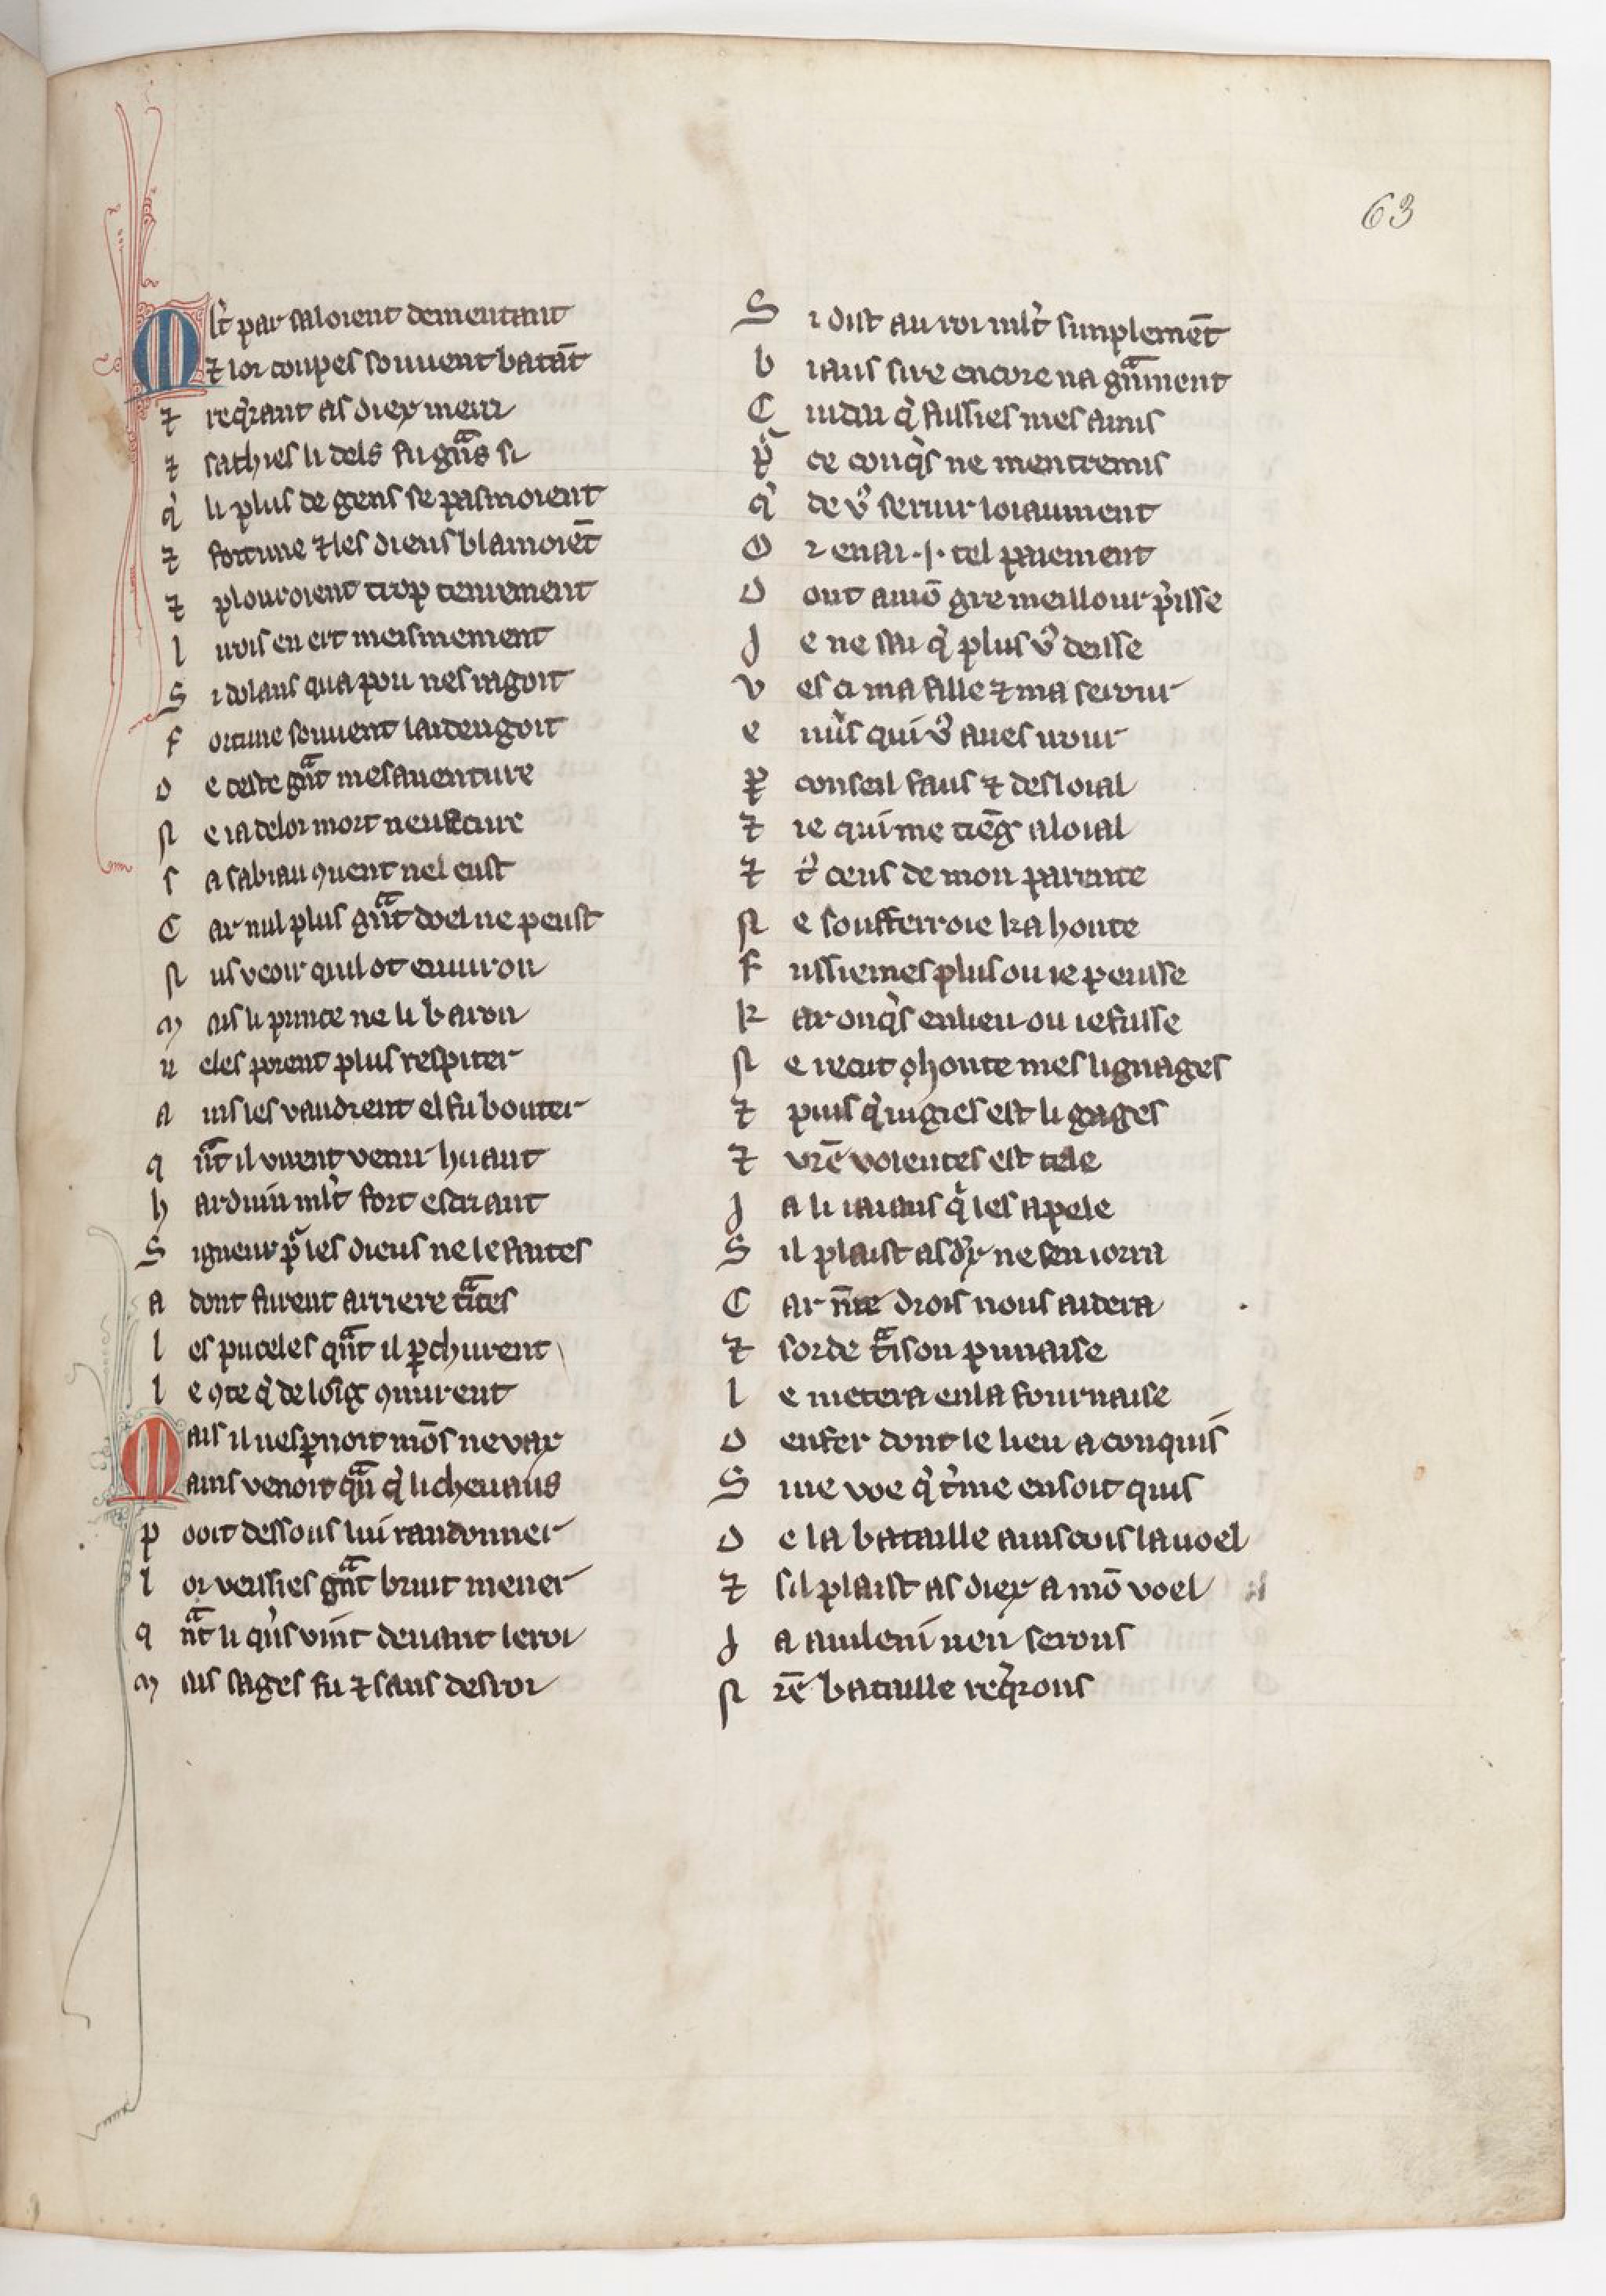 63
Ml't par saloient dementant
⁊ lor coupes souuent batāt
⁊ req'rant as diex merci
⁊ sachies li dels fu gn̄s si
q' li plus de gens se pasmoient
⁊ fortune ⁊ les dieus blamoiēt
⁊ plouroient trop tenrement
l i rois en ert meismement
S i dolans qua pou nesragoit
f ortune souuent laidengoit
D e ceste gn̄t mesauenture
N e ia de lor mort neust cure
s a sabiau ꝯuent nel eust
C ar nul plus gn̄t doel ne peust
N us veoir quil ot enuiron
M ais li prince ne li baron
n e les porent plus respiter
a ins les vaudrent el fu bouter
q n̄t il virent venir huiant
h arduin ml't fort escriant
S igneur pͣ les dieus ne le faites
a dont furent arriere tͣites
l es puceles qn̄t il ꝑchurent
l e ꝯte q' de loig ꝯnurent
M ais il nesp̄noit mōs ne vax
ains venoit qn̄ q' li cheuaus
p ooit dessous lui randonner
l or veissies gn̄t bruit mener
q n̄t li qu'is vint deuant le roi
M ais sages fu ⁊ sans desroi
S i dist au roi ml't simplemēt
b iaus sire encore na gn̄ment
C uidai q' fussies mes amis
pͣ ce conq's ne mentremis
q' de v' seruir loiaument
O r en ai .i. tel paiement
D ont a mō gre meillour p'isse
J e ne sai q' plus v' desisse
v es ci ma fille ⁊ ma serour
e nu's qui v' aues irour
ꝑ conseil faus ⁊ desloial
⁊ ie qui me tiēg a loial
⁊ t' ceus de mon parente
N e soufferroie ka honte
f ussiemes plus ou ie peuisse
k ar onq's en lieu ou ie fuisse
N e recut ꝯ honte mes lignages
⁊ puis q' iugies est li gages
⁊ vrē volentes est tele
J a li iaians q' les apele
S il plaist as dx ne sen iorra
C ar n̄re drois nous aidera
⁊ sorde tͣison punaise
l e metera en la fournaise
D enfer dont le lieu a conquis
S iie voe q' t'me en soit quis
D e la bataille ainscois la voel
⁊ sil plaist as diex a mō voel
J a auileni nen serons
N rē bataille req'rons